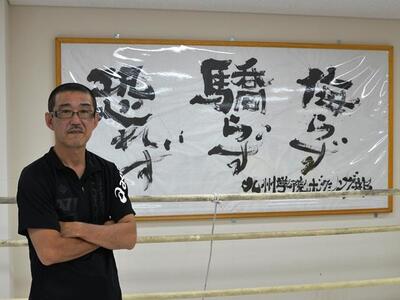 侮らず
驕らず
恐れず
九州学院ボクシング部
asics